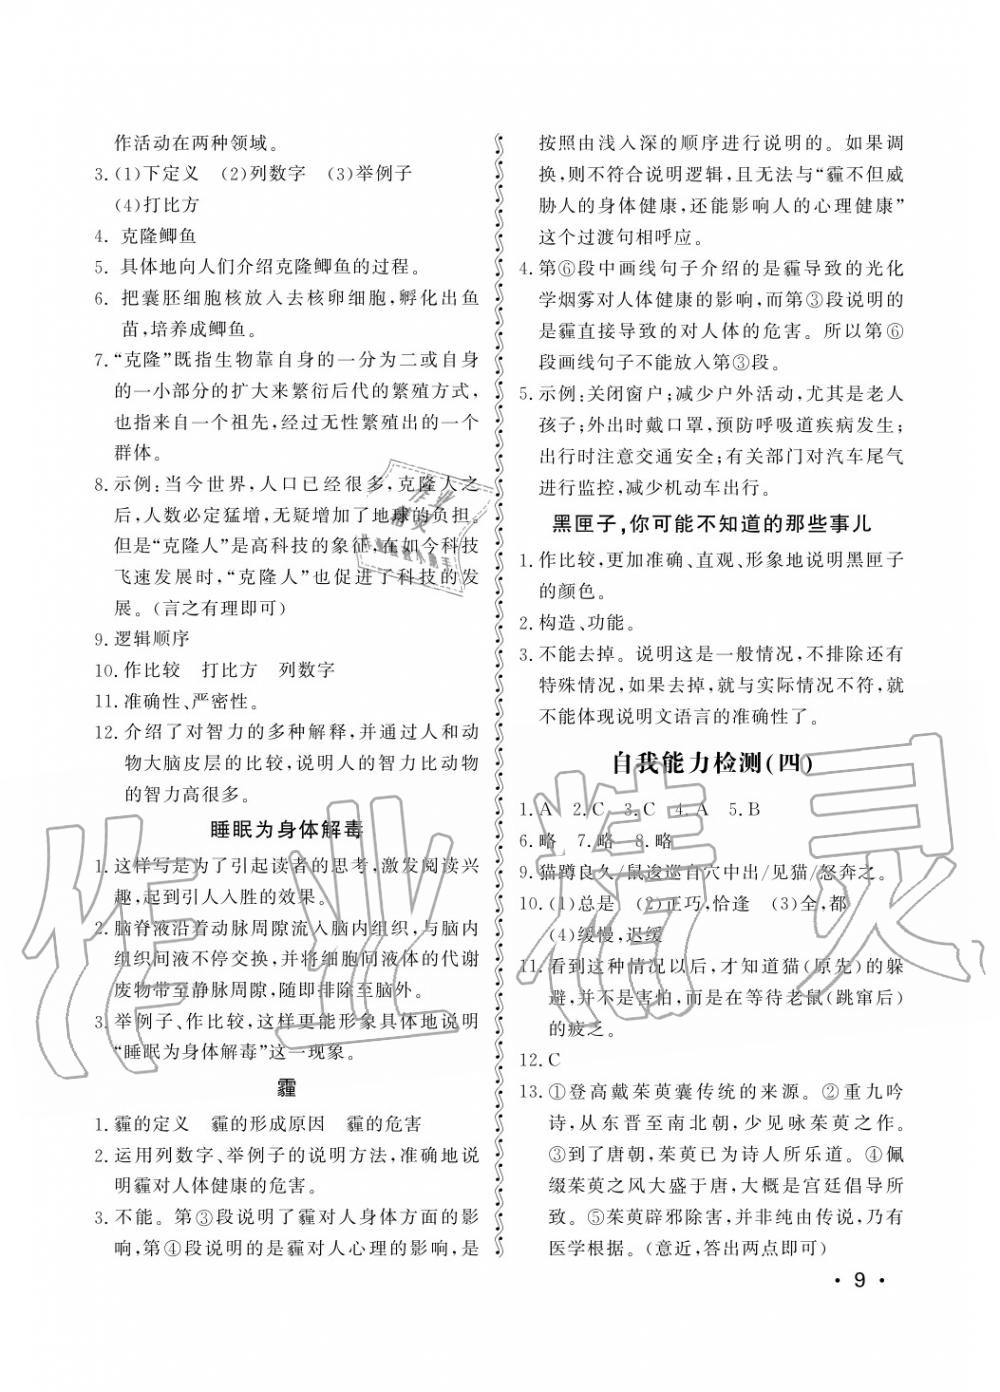 作活动在两种领域。
3. (1)下定义　(2)列数字　(3)举例子
(4)打比方
4. 克隆鲫鱼
5. 具体地向人们介绍克隆鲫鱼的过程。
6. 把囊胚细胞核放入去核卵细胞,孵化出鱼
苗,培养成鲫鱼。
7. “克隆”既指生物靠自身的一分为二或自身
的一小部分的扩大来繁衍后代的繁殖方式,
也指来自一个祖先,经过无性繁殖出的一个
群体。
8. 示例:当今世界,人口已经很多,克隆人之
后,人数必定猛增,无疑增加了地球的负担。
但是“克隆人”是高科技的象征,在如今科技
飞速发展时,“克隆人”也促进了科技的发
展。(言之有理即可)
9. 逻辑顺序
10. 作比较　打比方　列数字
11. 准确性、严密性。
12. 介绍了对智力的多种解释,并通过人和动
物大脑皮层的比较,说明人的智力比动物
的智力高很多。
睡眠为身体解毒
1. 这样写是为了引起读者的思考,激发阅读兴
趣,起到引人入胜的效果。
2. 脑脊液沿着动脉周隙流入脑内组织,与脑内
组织间液不停交换,并将细胞间液体的代谢
废物带至静脉周隙,随即排除至脑外。
3. 举例子、作比较,这样更能形象具体地说明
“睡眠为身体解毒”这一现象。
霾
1. 霾的定义　霾的形成原因　霾的危害
2. 运用列数字、举例子的说明方法,准确地说
明霾对人体健康的危害。
3. 不能。第③段说明了霾对人身体方面的影
响,第④段说明的是霾对人心理的影响,是
按照由浅入深的顺序进行说明的。如果调
换,则不符合说明逻辑,且无法与“霾不但威
胁人的身体健康,还能影响人的心理健康”
这个过渡句相呼应。
4. 第⑥段中画线句子介绍的是霾导致的光化
学烟雾对人体健康的影响,而第③段说明的
是霾直接导致的对人体的危害。所以第⑥
段画线句子不能放入第③段。
5. 示例:关闭窗户;减少户外活动,尤其是老人
孩子;外出时戴口罩,预防呼吸道疾病发生;
出行时注意交通安全;有关部门对汽车尾气
进行监控,减少机动车出行。
黑匣子,你可能不知道的那些事儿
1. 作比较,更加准确、直观、形象地说明黑匣子
的颜色。
2. 构造、功能。
3. 不能去掉。说明这是一般情况,不排除还有
特殊情况,如果去掉,就与实际情况不符,就
不能体现说明文语言的准确性了。
自我能力检测(四)
1. A　2. C　3. C　4. A　5. B
6. 略　7. 略　8. 略
9. 猫蹲良久/鼠逡巡自穴中出/见猫/怒奔之。
10. (1)总是　(2)正巧,恰逢　(3)全,都
(4)缓慢,迟缓
11. 看到这种情况以后,才知道猫(原先)的躲
避,并不是害怕,而是在等待老鼠(跳窜后)
的疲乏。
12. C
13. ①登高戴茱萸囊传统的来源。②重九吟
诗,从东晋至南北朝,少见咏茱萸之作。
③到了唐朝,茱萸已为诗人所乐道。④佩
缀茱萸之风大盛于唐,大概是宫廷倡导所
致。⑤茱萸辟邪除害,并非纯由传说,乃有
医学根据。(意近,答出两点即可)
• 9 •
作业精灵